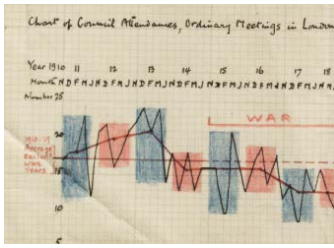 Chart of Council Attendances, Ordinary Meetings in London
Year 1910 11 12 13 14 15 16 17 18
Month N D F M J N D F M J N D F M J N D F M J N D F M J N D F M J N D F M J N D
Number 25
20
WAR
Average
excluding
War
Years
15
10
5